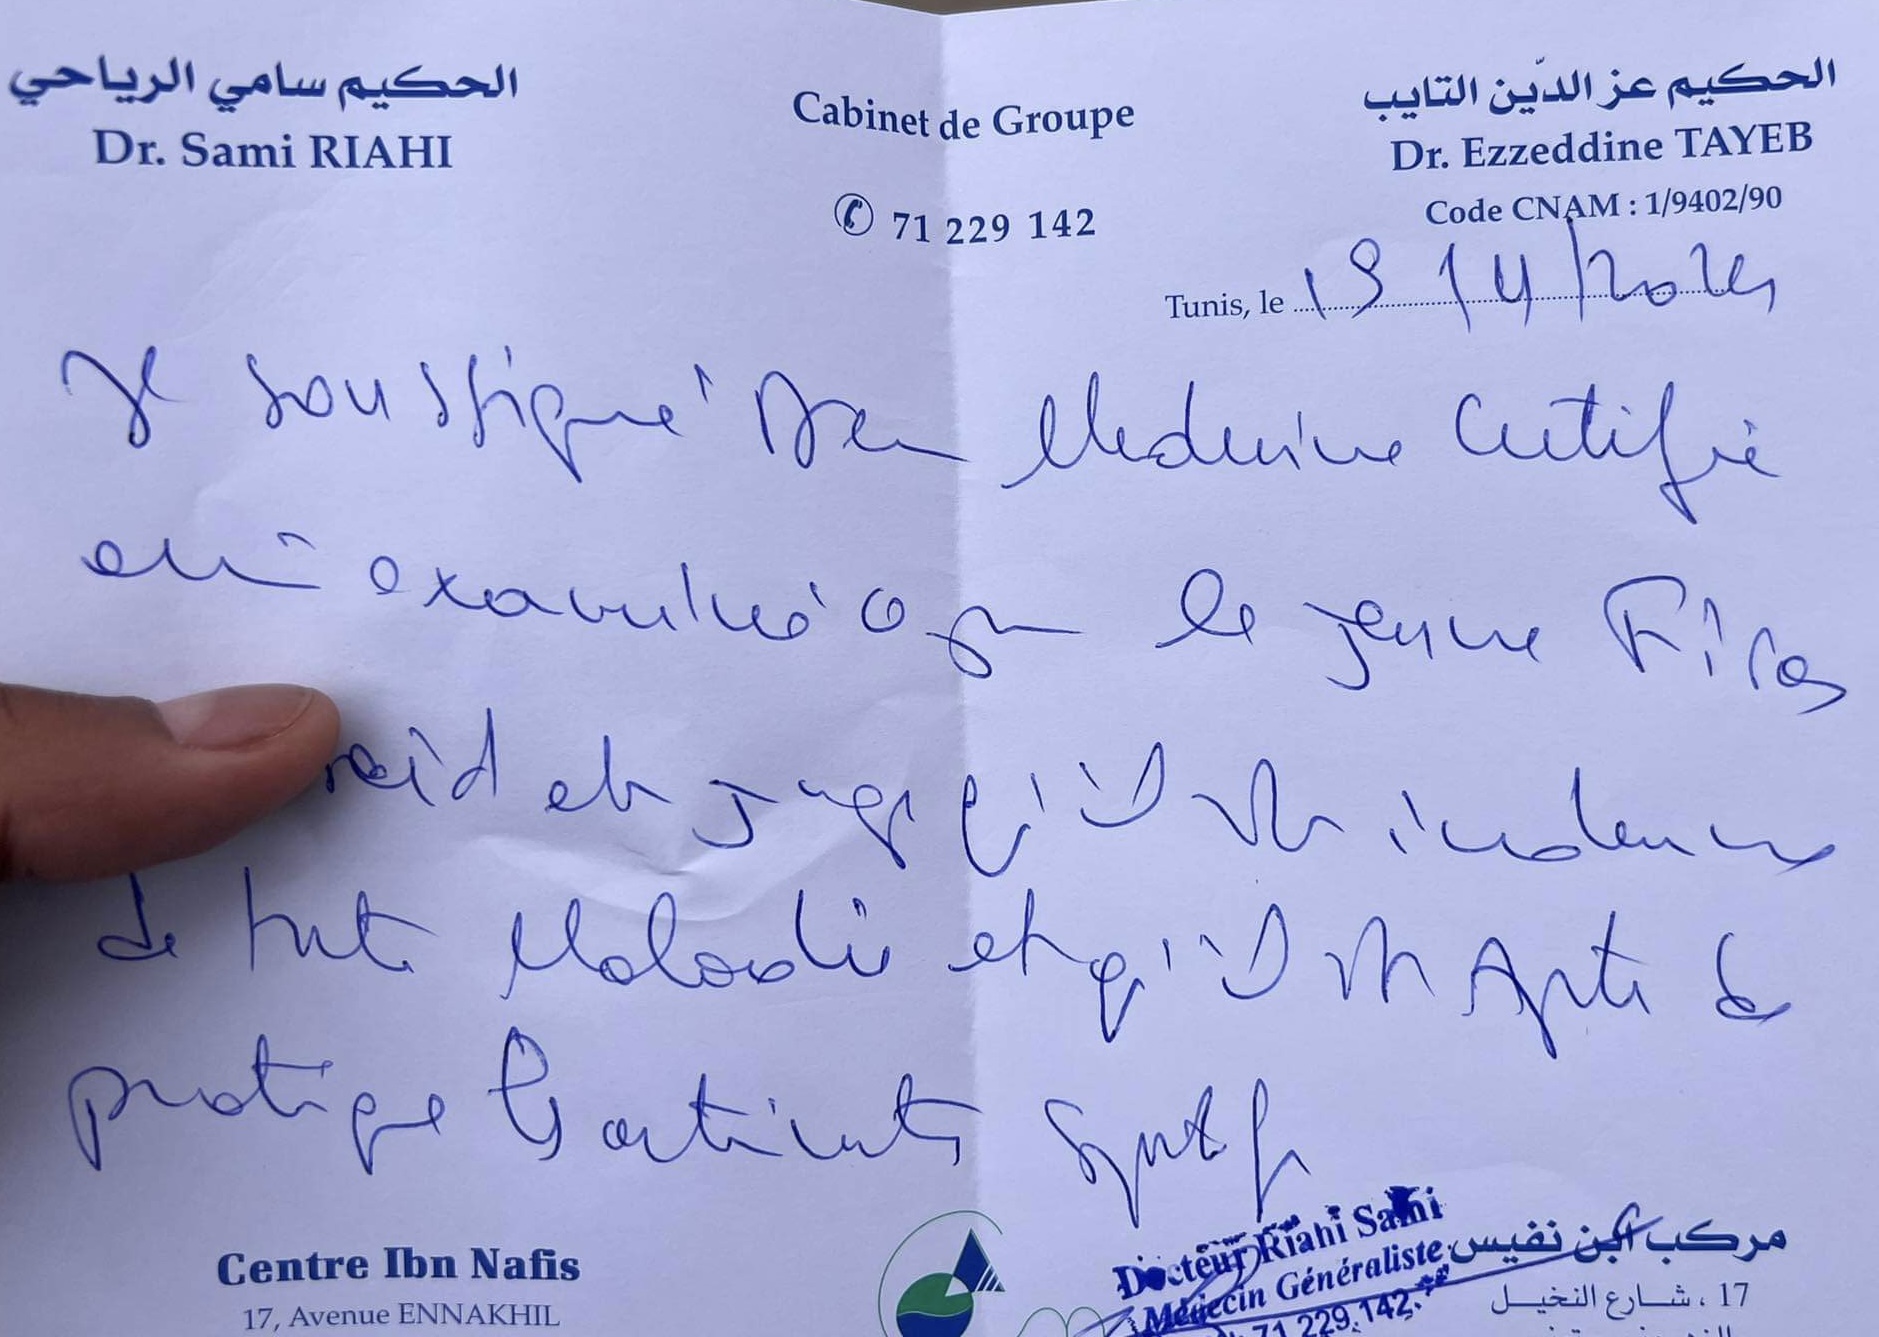 الحكيم سامي الرياحي
Dr. Sami RIAHI
Cabinet de Groupe
✆ 71 229 142
الحكيم عز الدّين التايب
Dr. Ezzeddine TAYEB
Code CNAM : 1/9402/90
Tunis, le 19/4/2024
Je soussigné Medecine Certifie
examiné le jeune Firas
et juge qu'il est indemne
de toute Maladie et qu'il est Apte à
pratiquer
Docteur Riahi Sami
Médecin Généraliste
71 229.142
Centre Ibn Nafis
17, Avenue ENNAKHIL
مركب ابن نفيس
17 ، شارع النخيل